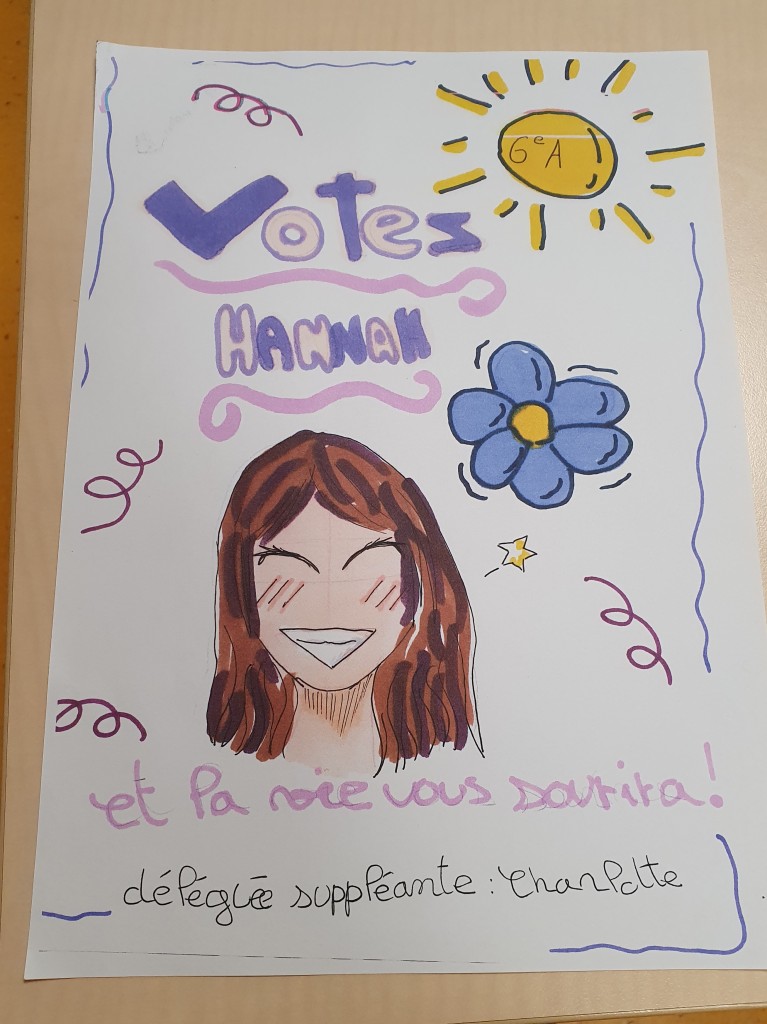 6e A
Votez
HANNAH
et la vie vous sourira!
déléguée suppléante : Charlotte